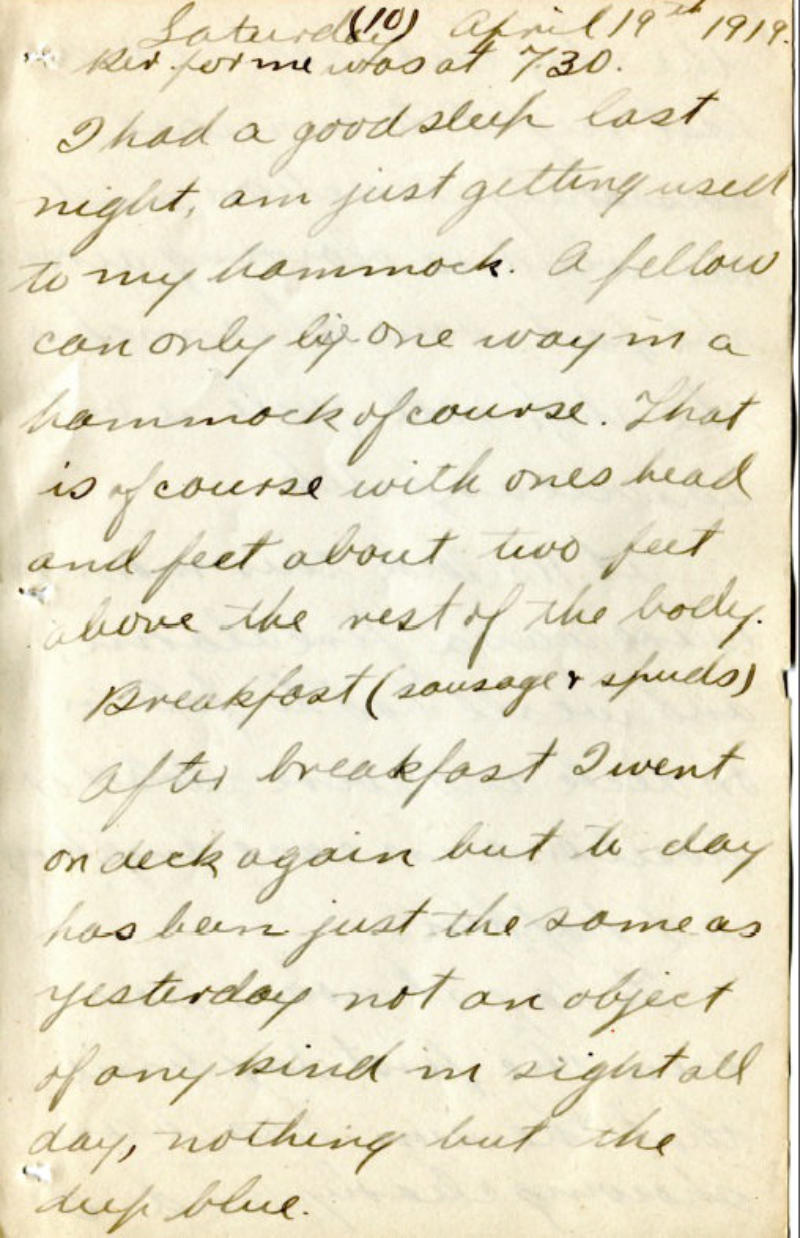 (10)
Saturday April 19th 1919.
Rev. for me was at 7.30.
I had a good sleep last
night, am just getting used
to my hammock. A fellow
can only lie one way in a
hammock of course. That
is of course with ones head
and feet about two feet
above the rest of the body.
Breakfast (sausage & spuds)
After breakfast I went
on deck again but to day
has been just the same as
yesterday not an object
of any kind in sight all
day, nothing but the
deep blue.